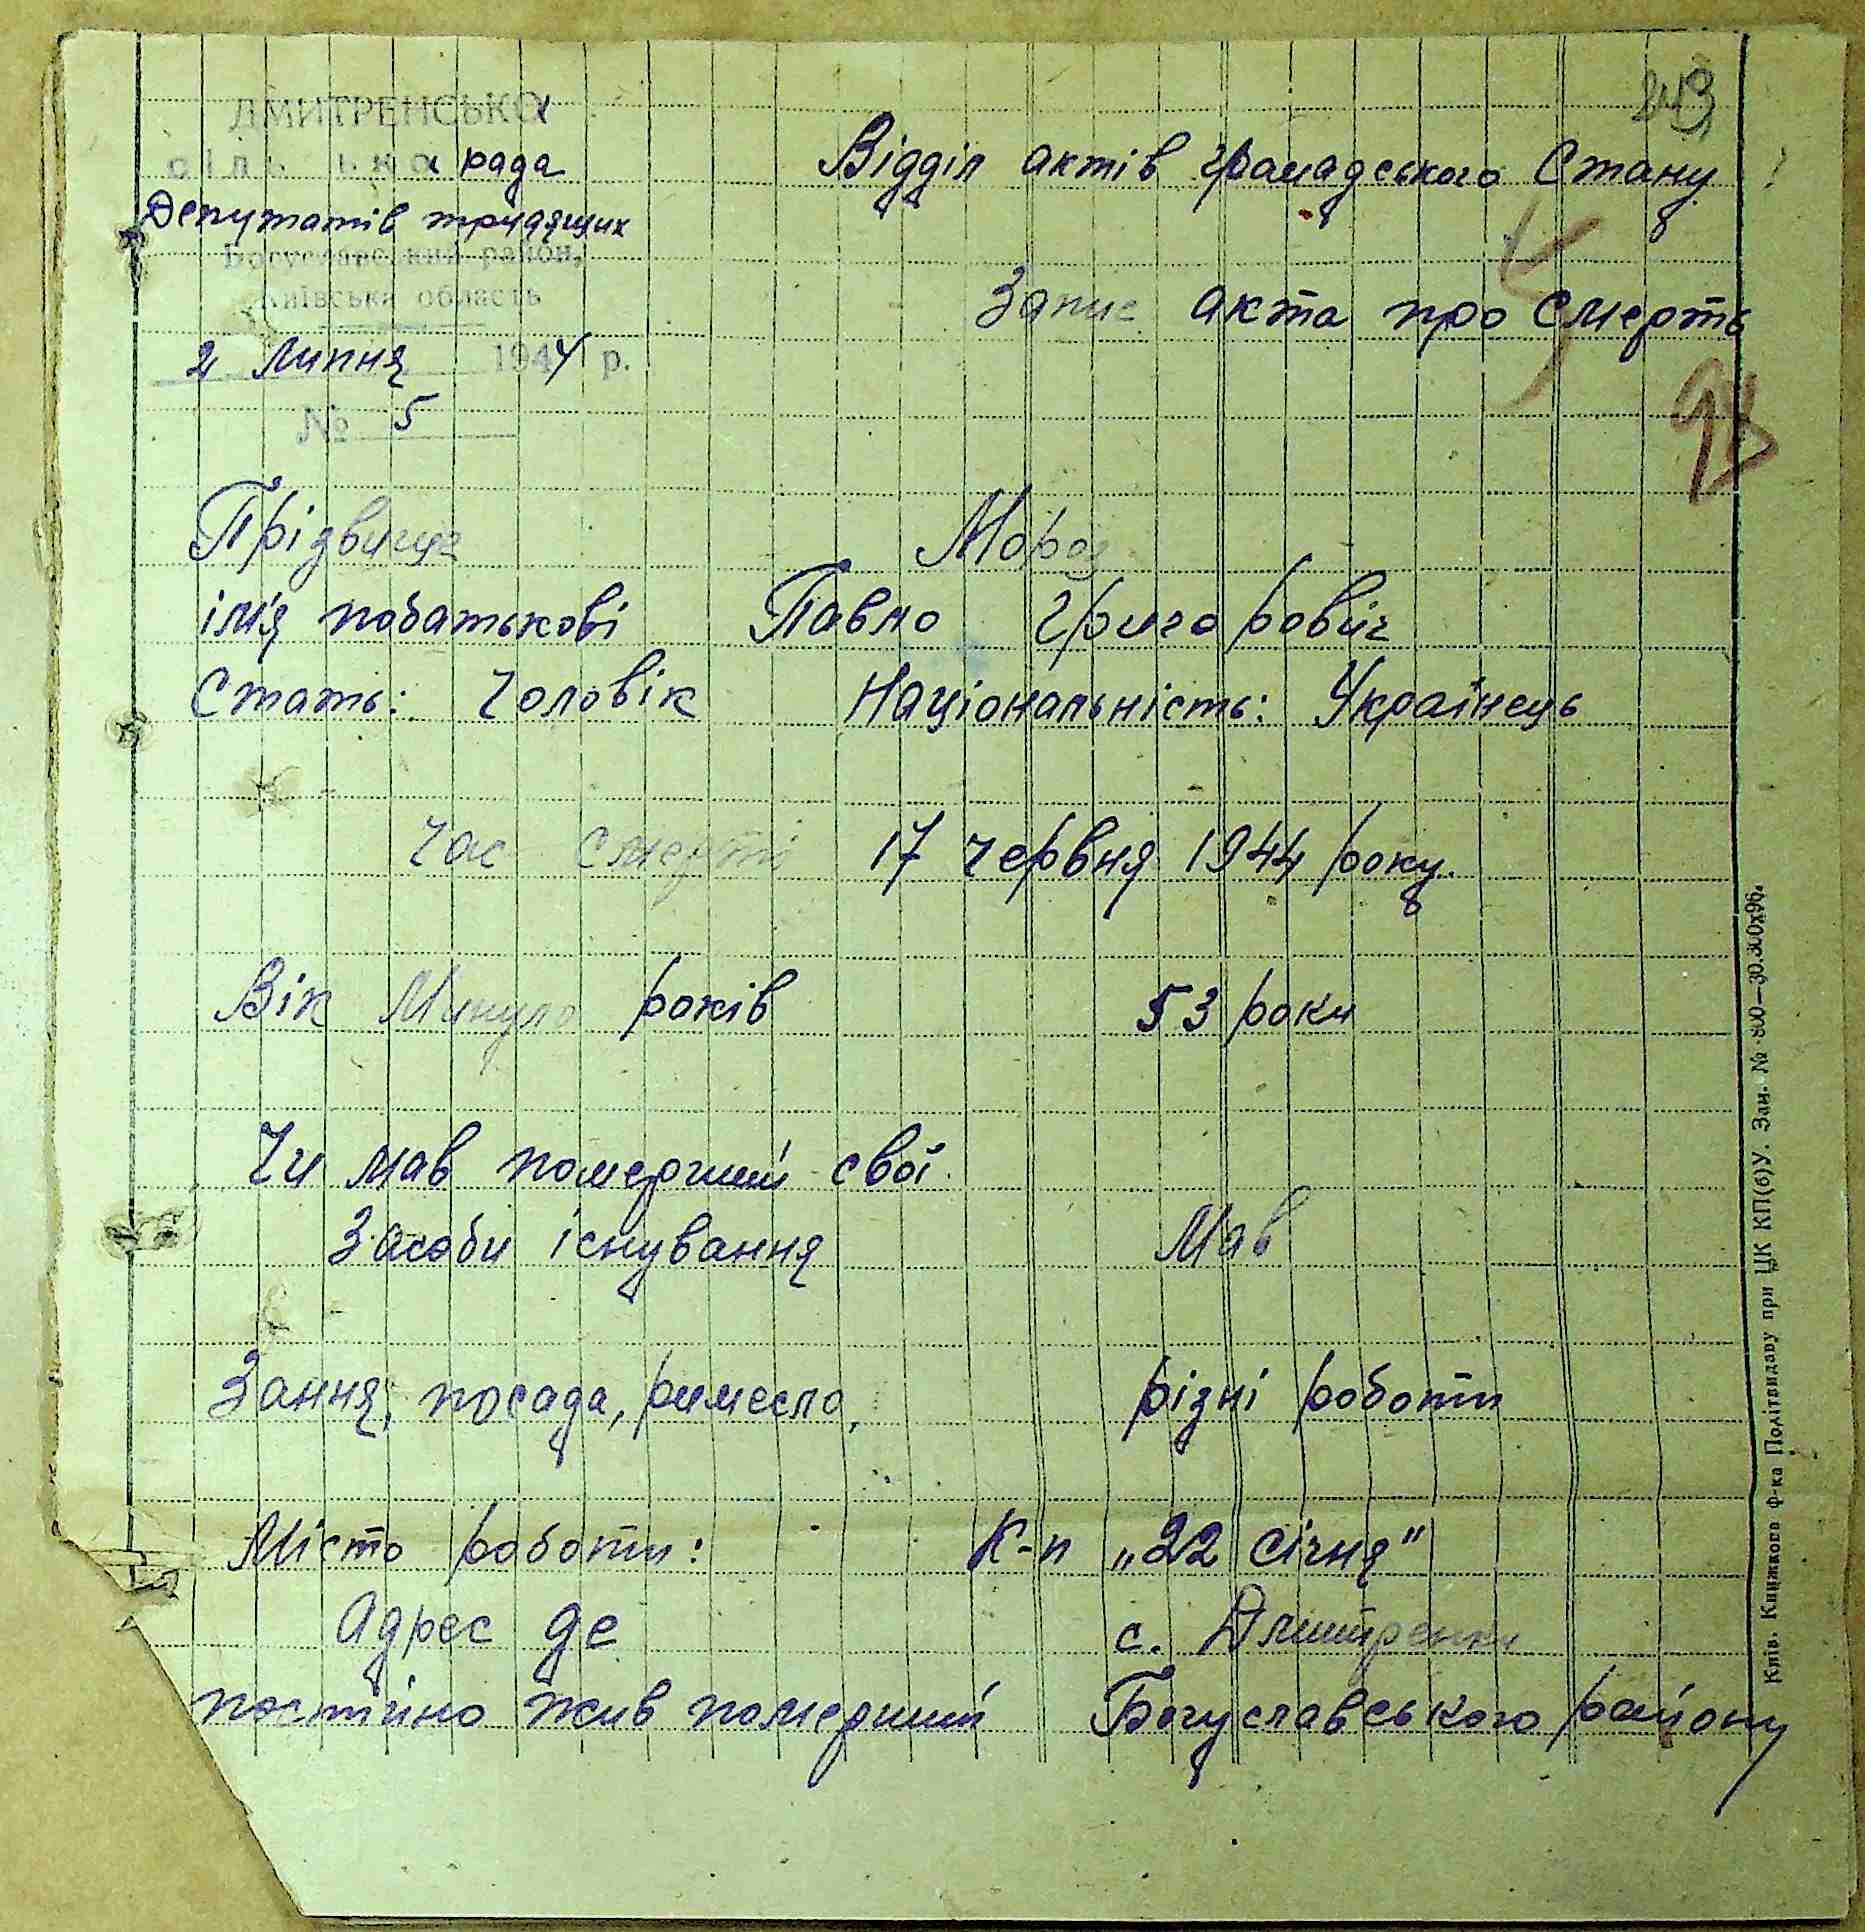 243
ДМИТРЕНСЬКА
сільська рада
Депутатів трудящих
Богуславський район,
Київська область
2 липня 1944 р.
№ 5
Відділ актів громадського Стану
Запис акта про Смерть
Прізвище Мороз
ім'я побатькові Павло Григорович
Стать: Чоловік Національність: Українець
Час смерті 17 червня 1944 року.
Вік Минуло років 53 роки
Чи мав померший свої
Засоби існування Мав
Зання, посада, римесло, різні роботи
Місто роботи: К-п „22 січня"
Адрес де с. Дмитренки
постійно жив померший Богуславського району
Київ. Книжкова ф-ка Політвидаву при ЦК КП(б)У. Зам. № 800—30.300х96.